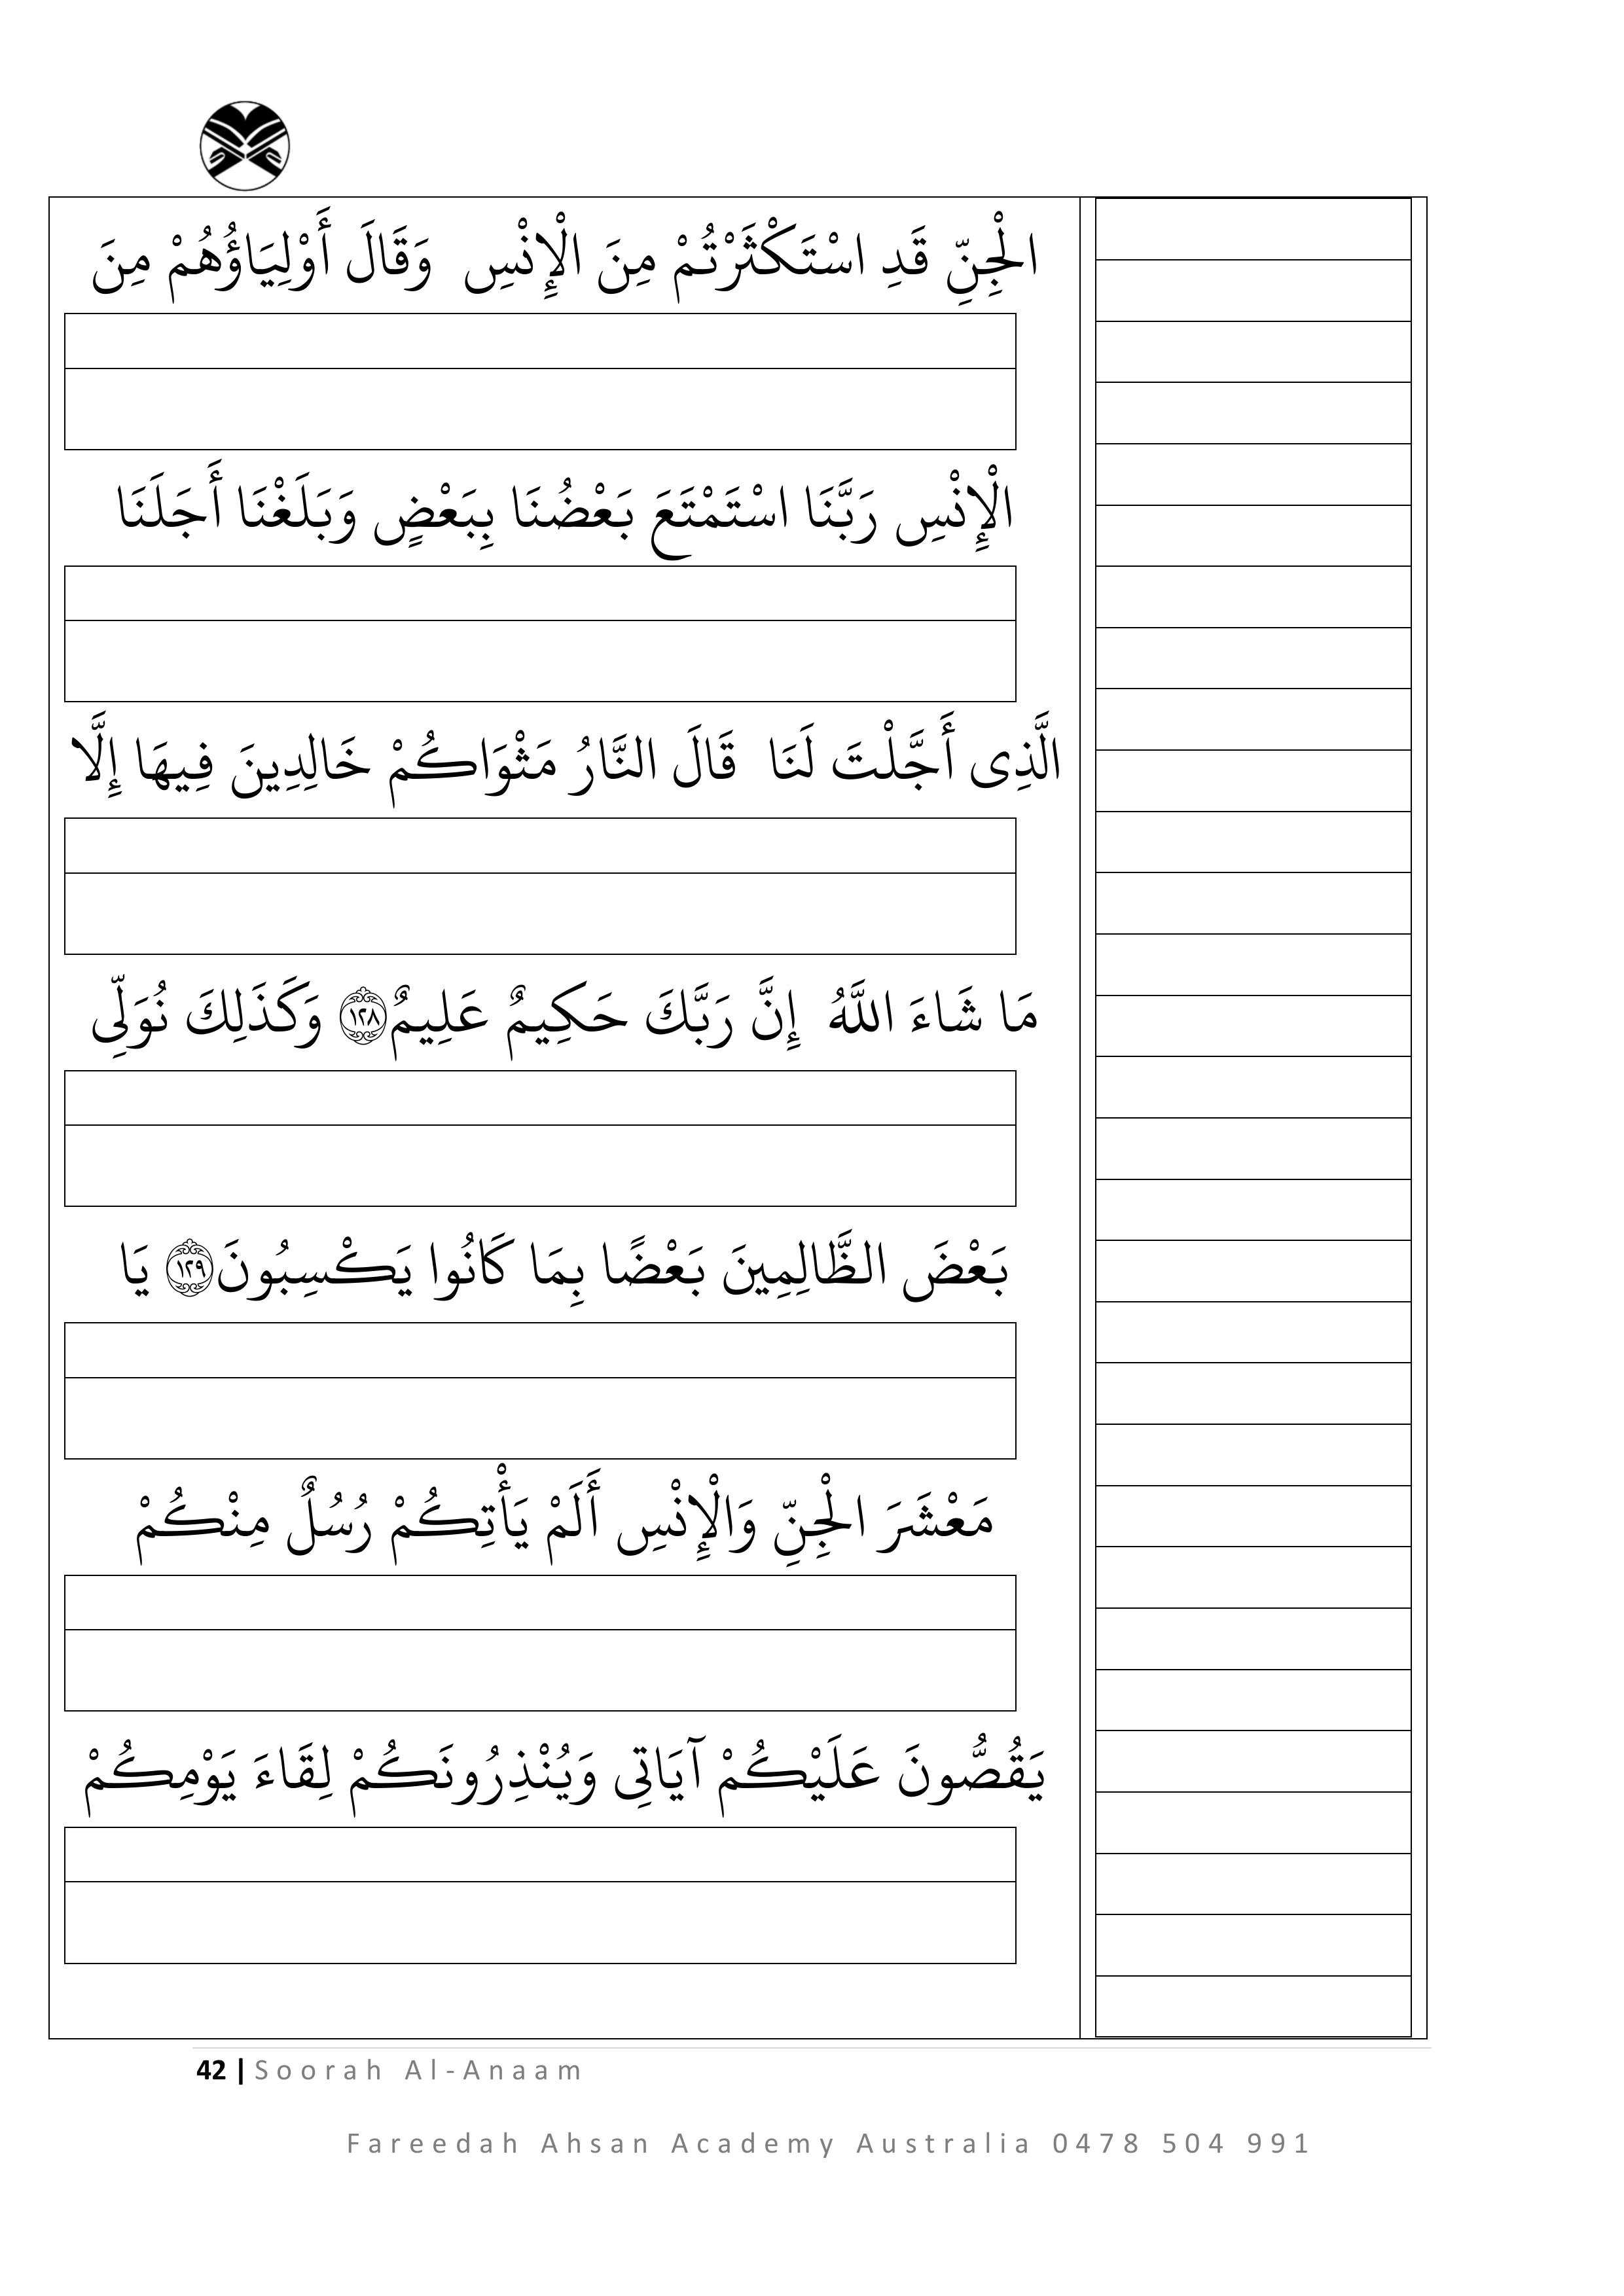 الْجِنِّ قَدِ اسْتَكْثَرْتُمْ مِنَ الْإِنْسِ وَقَالَ أَوْلِيَاؤُهُمْ مِنَ
الْإِنْسِ رَبَّنَا اسْتَمْتَعَ بَعْضُنَا بِبَعْضٍ وَبَلَغْنَا أَجَلَنَا
الَّذِى أَجَّلْتَ لَنَا قَالَ النَّارُ مَثْوَاكُمْ خَالِدِينَ فِيهَا إِلَّا
مَا شَاءَ اللَّهُ إِنَّ رَبَّكَ حَكِيمٌ عَلِيمٌ ۝١٢٨ وَكَذَلِكَ نُوَلِّى
بَعْضَ الظَّالِمِينَ بَعْضًا بِمَا كَانُوا يَكْسِبُونَ ۝١٢٩ يَا
مَعْشَرَ الْجِنِّ وَالْإِنْسِ أَلَمْ يَأْتِكُمْ رُسُلٌ مِنْكُمْ
يَقُصُّونَ عَلَيْكُمْ آيَاتِى وَيُنْذِرُونَكُمْ لِقَاءَ يَوْمِكُمْ
42 | Soorah Al-Anaam
Fareedah Ahsan Academy Australia 0478 504 991